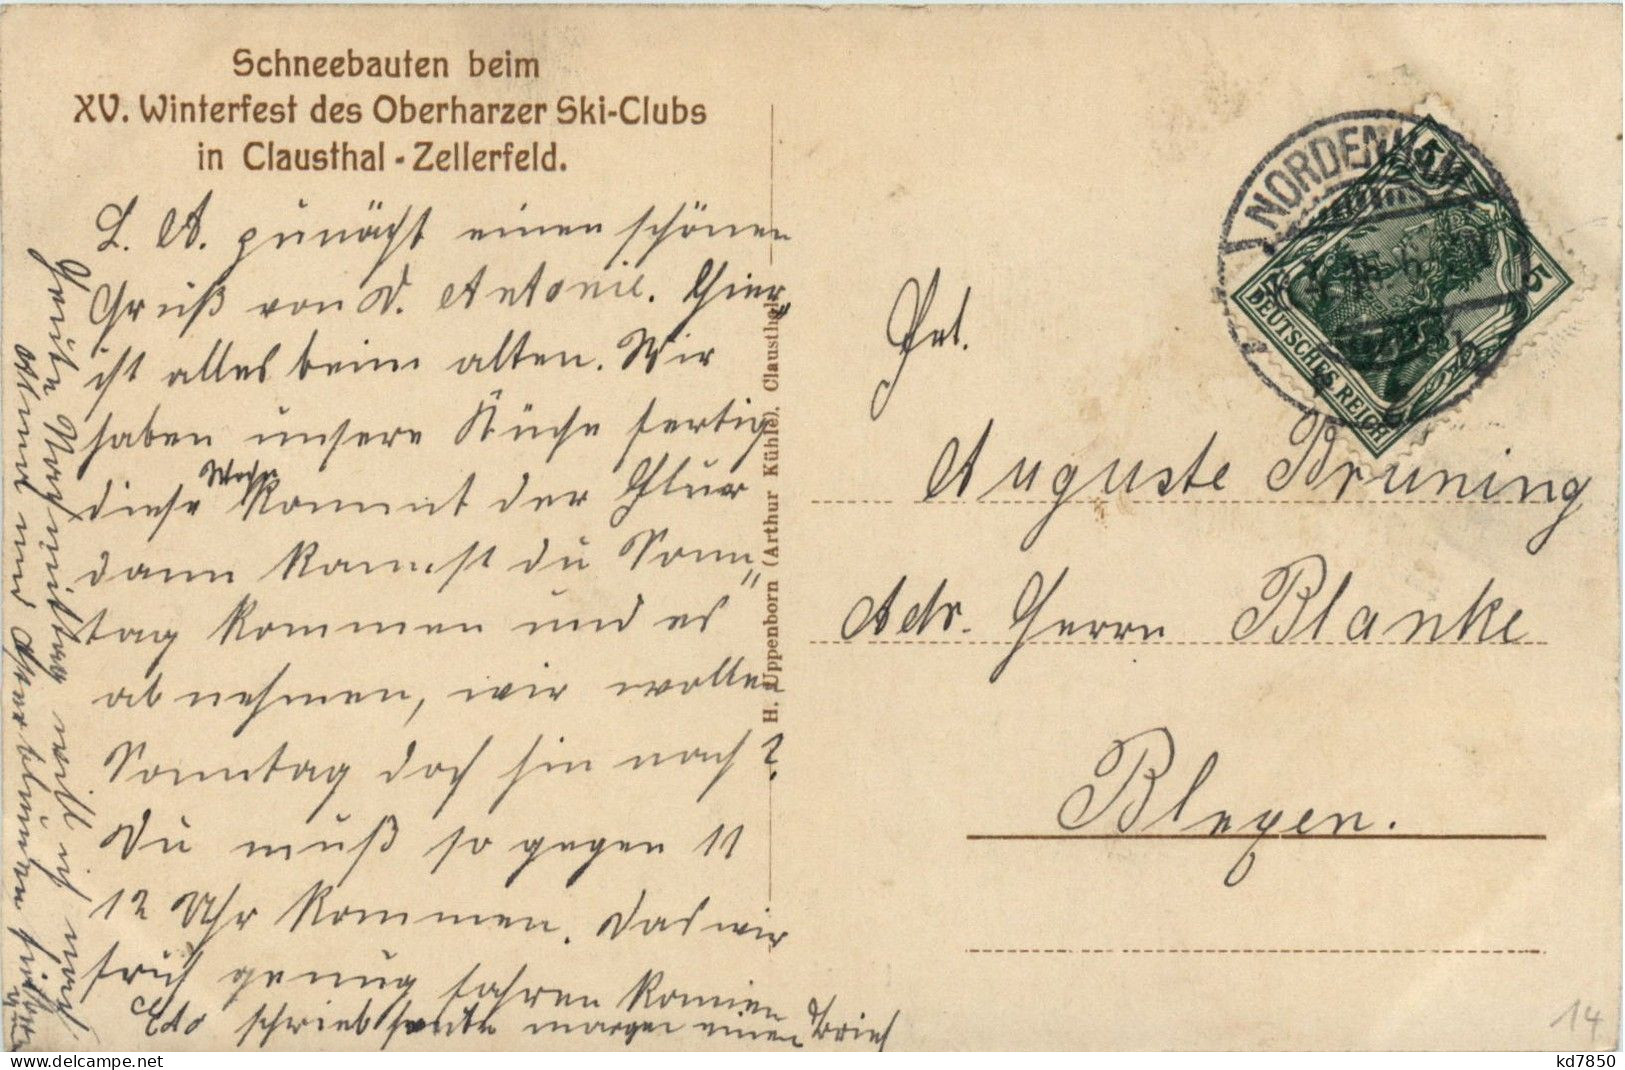 Schneebauten beim
XV. Winterfest des Oberharzer Ski-Clubs
in Clausthal-Zellerfeld.
L. A. zunächst einen schönen
Gruß von D. Antonie. Hier
ist alles beim alten. Wir
haben unsere Küche fertig
diese Woche kommt der Flur
dann kannst du Sonn„
tag kommen und es
abnehmen, wir wollen
Sonntag doch hin nach?
Du muß so gegen 11
12 Uhr kommen. Das wir
früh genug fahren können
Edo schrieb heute morgen einen Brief
Heute Nachmittag will ich nach
und
H. Uppenborn (Arthur Kühle), Clausthal.
NORDENHAM
5
5
DEUTSCHES REICH
Frl.
Auguste Bruning
Adr. Herrn Blanke
Blexen.
14
kd7850